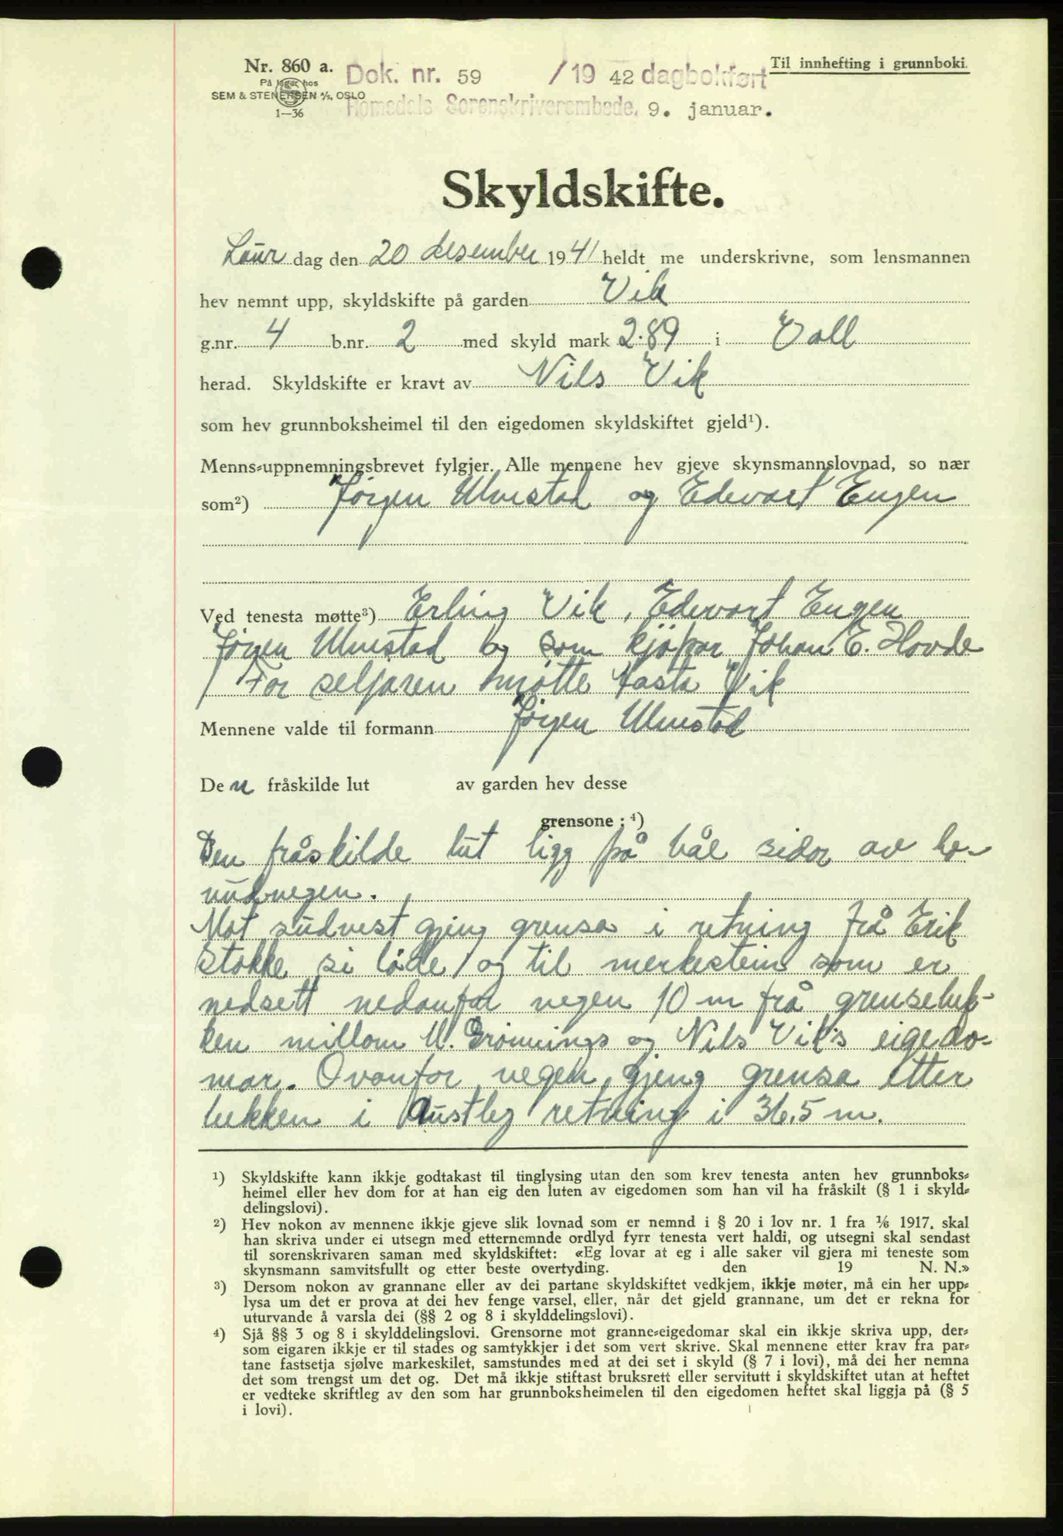 Nr. 860 a.
På lager hos
SEM & STENERSEN A/S, OSLO
1—36
Dok. nr. 59 /19 42 dagbokført
Romsdals Sorenskriverembede, 9. januar.
Til innhefting i grunnboki.
Skyldskifte.
Laur dag den 20 desember 1941 heldt me underskrivne, som lensmannen
hev nemnt upp, skyldskifte på garden Vik
g.nr. 4 b.nr. 2 med skyld mark 2.89 i Voll
herad. Skyldskifte er kravt av Nils Vik
som hev grunnboksheimel til den eigedomen skyldskiftet gjeld¹).
Menns-uppnemningsbrevet fylgjer. Alle mennene hev gjeve skynsmannslovnad, so nær
som²) Jørgen Ulvestad og Edevart Engen
Ved tenesta møtte³) Erling Vik, Edevart Engen
Jørgen Ulvestad og som kjøpar Johan E. Hovde
For seljaren møtte Kasta Vik
Mennene valde til formann Jørgen Ulvestad
Den fråskilde lut av garden hev desse
grensone: ⁴)
Den fråskilde lut ligg på båe sidor av ho-
vudvegen.
Mot sudvest gjeng grensa i retning frå Erik
Stokke si løde og til merkestein som er
nedsett nedanfor vegen 10 m frå grensebek-
ken millom U. Grønnings og Nils Vik's eigedo-
mar. Ovanfor vegen gjeng grensa etter
bekken i austleg retning i 36.5 m.
¹) Skyldskifte kann ikkje godtakast til tinglysing utan den som krev tenesta anten hev grunnboks-
heimel eller hev dom for at han eig den luten av eigedomen som han vil ha fråskilt (§ 1 i skyld-
delingslovi).
²) Hev nokon av mennene ikkje gjeve slik lovnad som er nemnd i § 20 i lov nr. 1 fra 1/6 1917, skal
han skriva under ei utsegn med etternemnde ordlyd fyrr tenesta vert haldi, og utsegni skal sendast
til sorenskrivaren saman med skyldskiftet: «Eg lovar at eg i alle saker vil gjera mi teneste som
skynsmann samvitsfullt og etter beste overtyding. den 19 N. N.»
³) Dersom nokon av grannane eller av dei partane skyldskiftet vedkjem, ikkje møter, må ein her upp-
lysa um det er prova at dei hev fenge varsel, eller, når det gjeld grannane, um det er rekna for
uturvande å varsla dei (§§ 2 og 8 i skylddelingslovi).
⁴) Sjå §§ 3 og 8 i skylddelingslovi. Grensorne mot granne-eigedomar skal ein ikkje skriva upp, der-
som eigaren ikkje er til stades og samtykkjer i det som vert skrive. Skal mennene etter krav fra par-
tane fastsetja sjølve markeskilet, samstundes med at dei set i skyld (§ 7 i lovi), må dei her nemna
det som trengst um det og. Det må ikkje stiftast bruksrett eller servitutt i skyldskiftet utan at heftet
er vedteke skriftleg av den som har grunnboksheimelen til den eigedomen heftet skal liggja på (§ 5
i lovi).